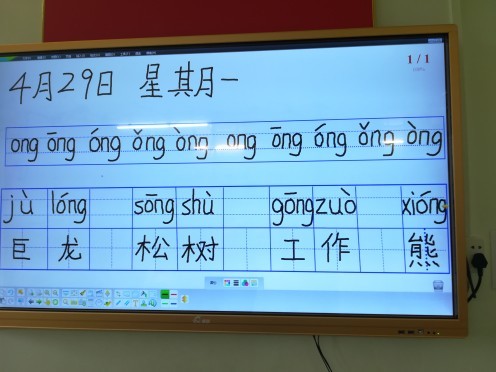 1/1
4月29日 星期一
ong ōng óng ǒng òng ong ōng óng ǒng òng
jù lóng sōng shù gōng zuò xióng
巨龙 松树 工作 熊